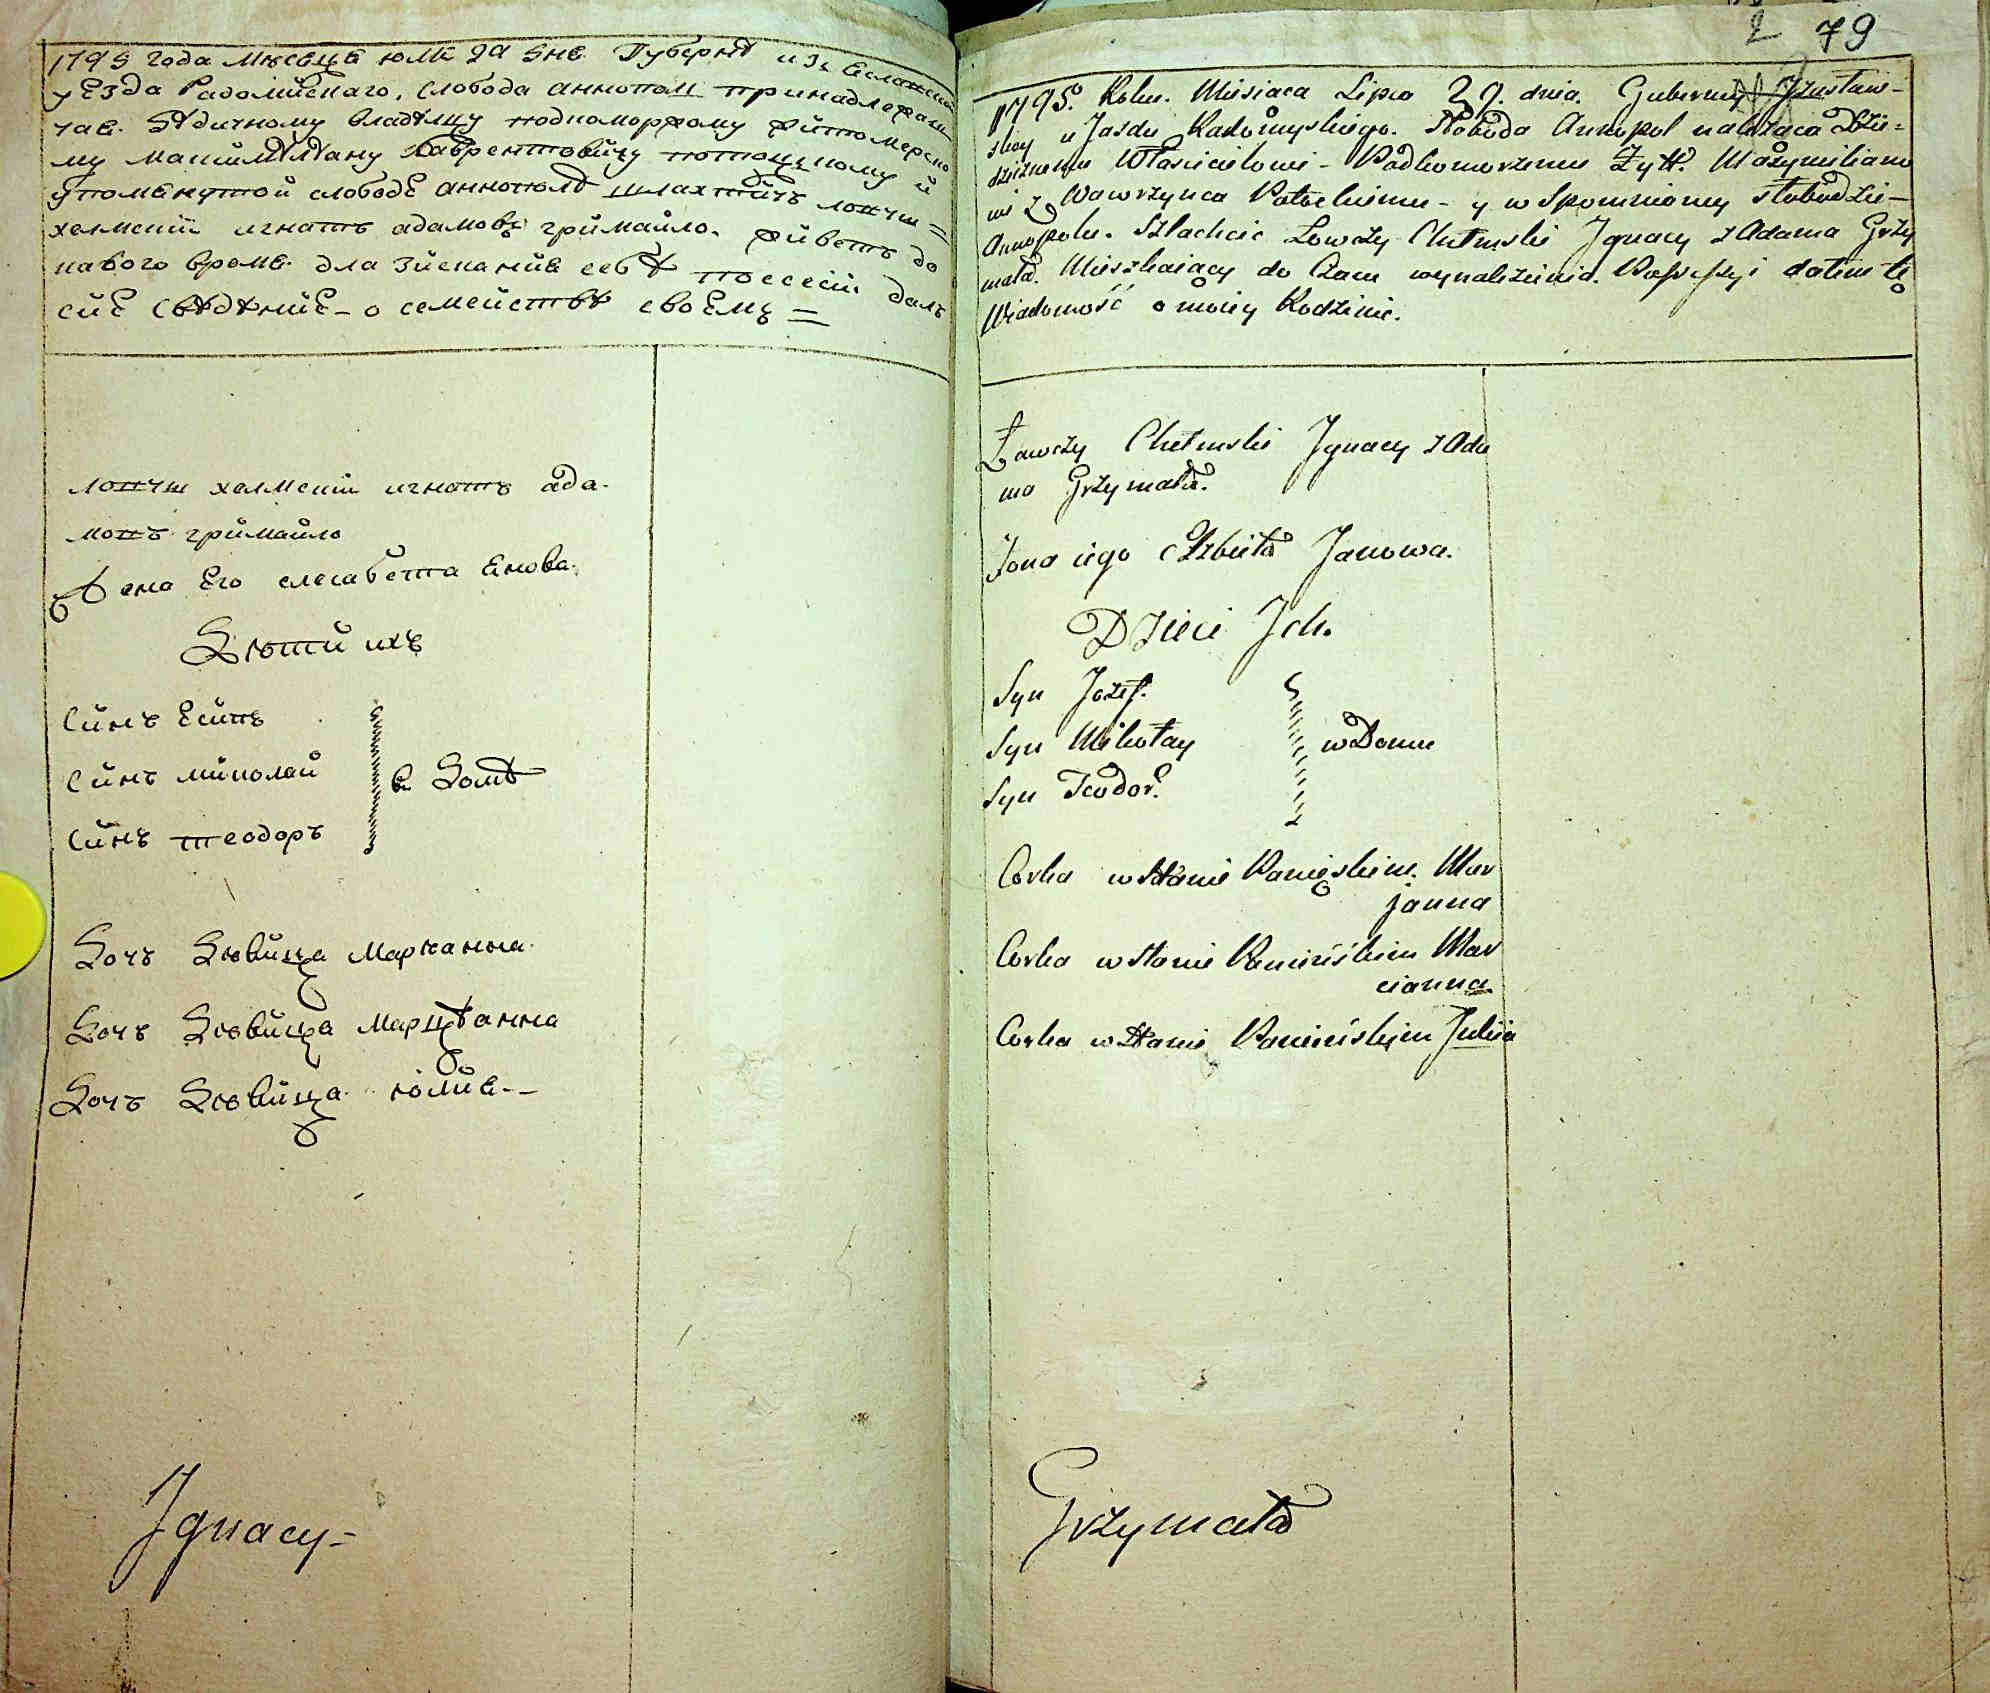 1795 года мѣсяца юля 29 дня Губернѣ изяславской
уезда Радомиїскаго, слобода аннополь принадлежащ
чая дѣдичному владѣлцу подкоморжому житомерско
му максимѣлѣану лаврентовичу потоцкому й
упомянутой слободе аннополѣ шляхтичъ ловчи=
хелмскій игнатъ адамовъ гримайло. живетъ до
какого время для зискания себѣ поссесіи далъ
сие свѣдѣние – о семействѣ своемъ =
2 79
1795. Roku. Miesiąca Lipca 29. dnia. Gubernij Jzasław-
skey u Jazdu Radomyskiego. Słoboda Annopol należąca Dzie=
dzicznemu Włascicielowi – Podkomorzemu Żytt. Maxymiliano
wi z Wawrzynca Potockiemu – y w Spomnioney słobodzie –
Annopolu. Szlachcic Łowczy Chełmski Jgnacy z Adama Grzy
mała. Mieszkaiący do Czasu wynalezienia. Possessyi datem tę
Wiadomość o moiey Rodzinie.
ловчи хелмскій игнатъ ада-
мовъ гримайло
жена Его елисабета Янова.
Дѣти ихъ
Синъ Есипъ
Синъ миколай
Синъ теодоръ
в Домѣ
Дочъ Дѣвица Марианна.
Дочъ Дѣвица Марцѣанна
Дочъ Дѣвица юлия –
Jgnacy –
Łowczy Chełmski Jgnacy z Ada
ma Grzymała.
Żona iego Elzbieta Janowa.
Dzieci Jch.
Syn Jozef.
Syn Mikołay
Syn Teodor.
w Domu
Corka w Stanie Panięskim. Mar
janna
Corka w stanie Panieńskim Mar
cianna
Corka w Stanie Panieńskim Julija
Grzymała